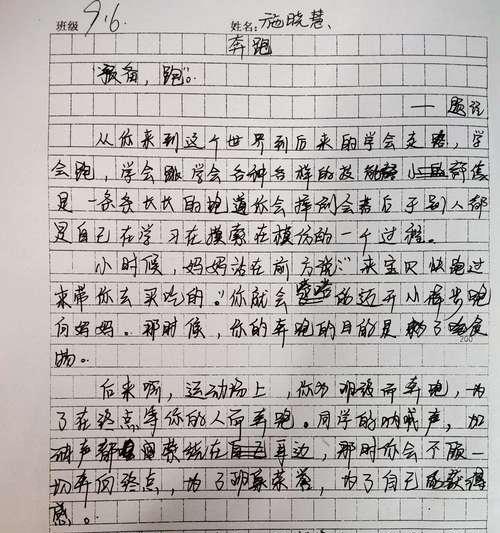 班级 9.6. 姓名: 施晓慧、
奔跑
"预备,跑"。
——题记
从你来到这个世界到后来的学会走路,学
会跑,学会跳学会各种各样的技能
是一条条长长的跑道你会摔倒会落后于别人都
是自己在学习在摸索在模仿的一个过程。
小时候,妈妈站在前方说:"来宝贝快跑过
来带你去买吃的。"你就会 的迈开小 步跑
向妈妈。那时候,你的奔跑的目的是为了 食
物。
200
后来啊,运动场上,你为班级而奔跑,为
了在终点等你的人而奔跑。同学的呐喊声,加
油声都 萦绕在 耳边,那时你会不顾一
切奔向终点,为了班级荣誉,为了自己 获得
感。